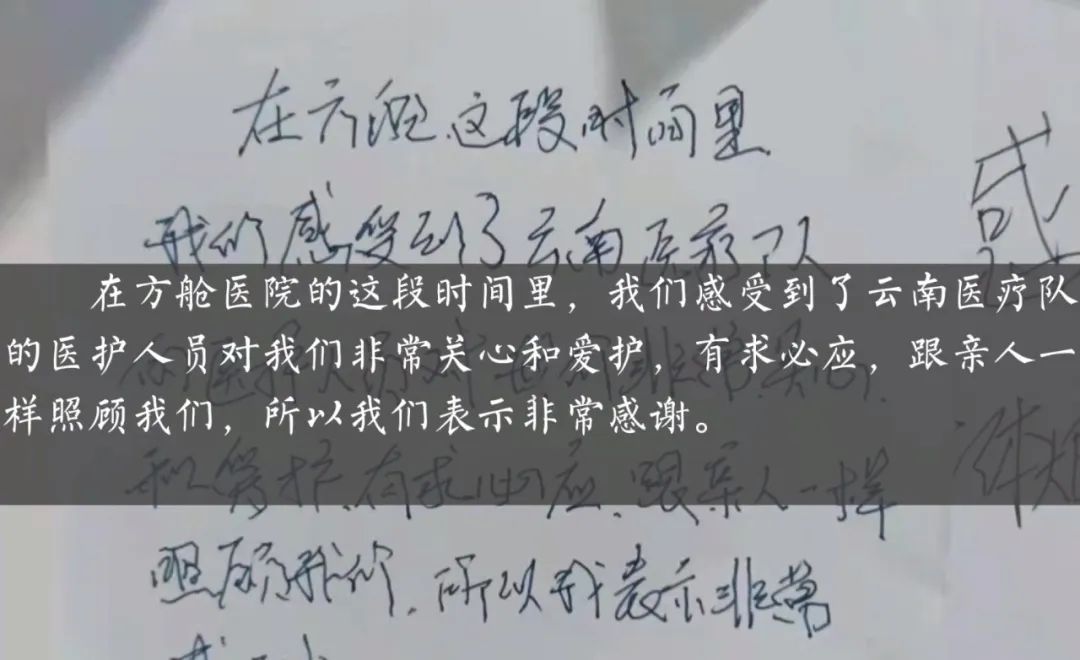 在方舱这段时间里
我们感受到了云南医疗队
在方舱医院的这段时间里，我们感受到了云南医疗队
的医护人员对我们非常关心和爱护，有求必应，跟亲人一
样照顾我们，所以我们表示非常感谢。
的医护人员对我们非常关心
和爱护，有求必应，跟亲人一样
照顾我们，所以我表示非常
感谢
感